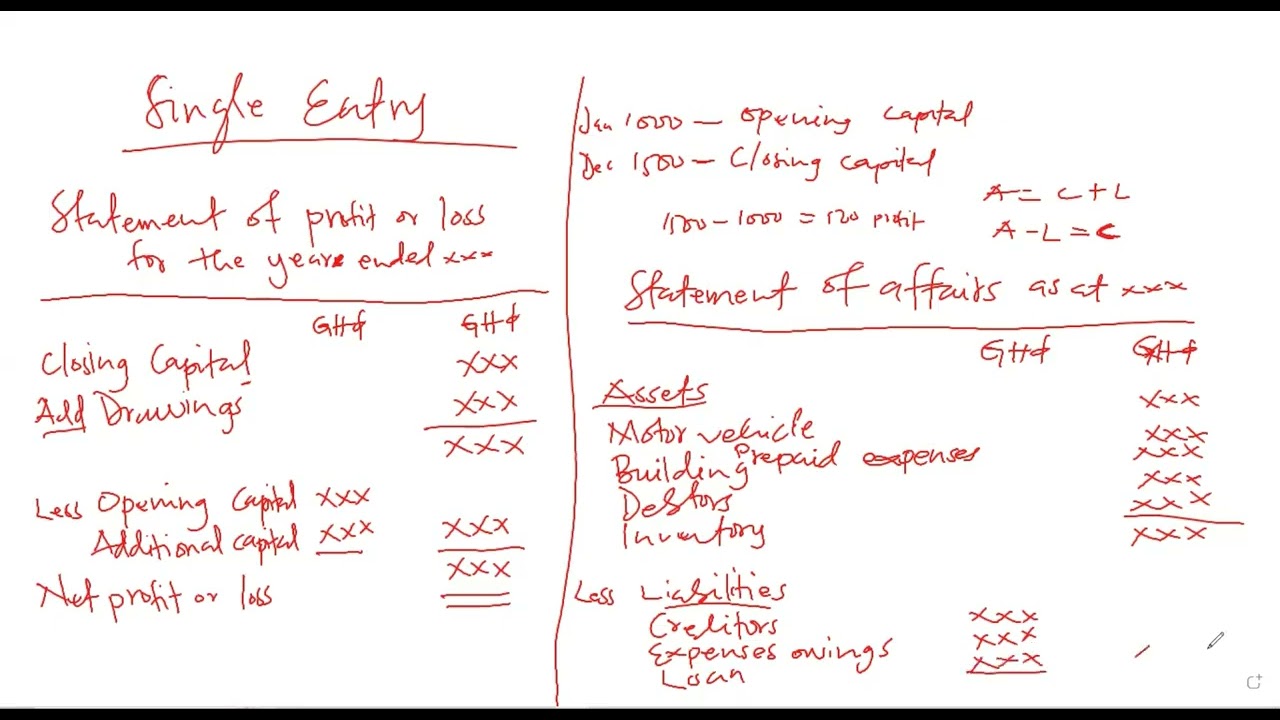 Single Entry
Statement of profit or loss
for the year ended xxx
GH¢ GH¢
Closing Capital xxx
Add Drawings xxx
xxx
Less Opening Capital xxx
Additional capital xxx xxx
xxx
Net profit or loss
Jan 1000 – Opening capital
Dec 1500 – Closing capital
1500 – 1000 = 500 profit
A = C + L
A – L = C
Statement of affairs as at xxx
GH¢ GH¢
Assets xxx
Motor vehicle xxx
Prepaid expenses xxx
Building xxx
Debtors xxx
Inventory xxx
Less Liabilities
Creditors xxx
Expenses owings xxx
Loan xxx